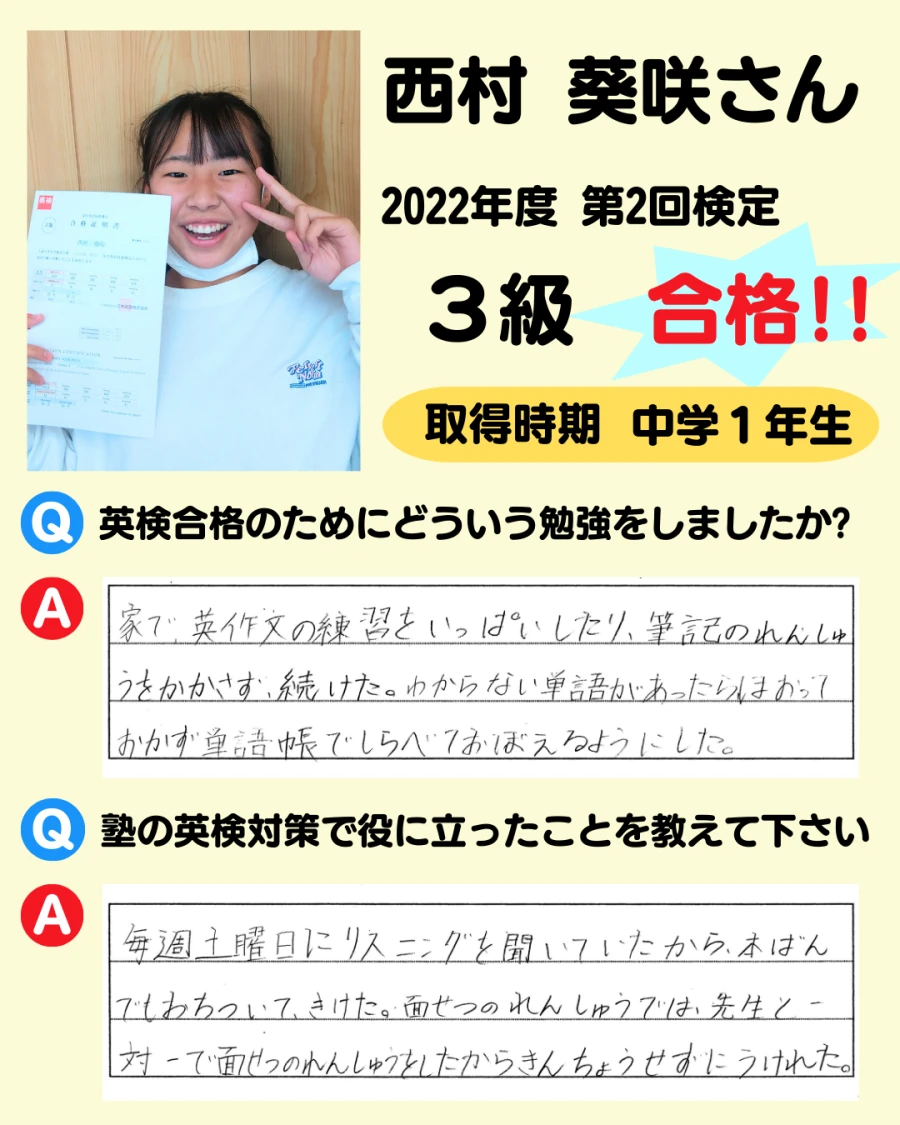 西村 葵咲さん
2022年度 第2回検定
3級 合格!!
取得時期 中学1年生
英検
合格証明書
Q 英検合格のためにどういう勉強をしましたか?
A
家で、英作文の練習をいっぱいしたり、筆記のれんしゅ
うをかかさず、続けた。わからない単語があったらほおって
おかず単語帳でしらべておぼえるようにした。
Q 塾の英検対策で役に立ったことを教えて下さい
A
毎週土曜日にリスニングを聞いていたから、本ばん
でもおちついて、きけた。面せつのれんしゅうでは、先生と一
対一で面せつのれんしゅうをしたからきんちょうせずにうけれた。